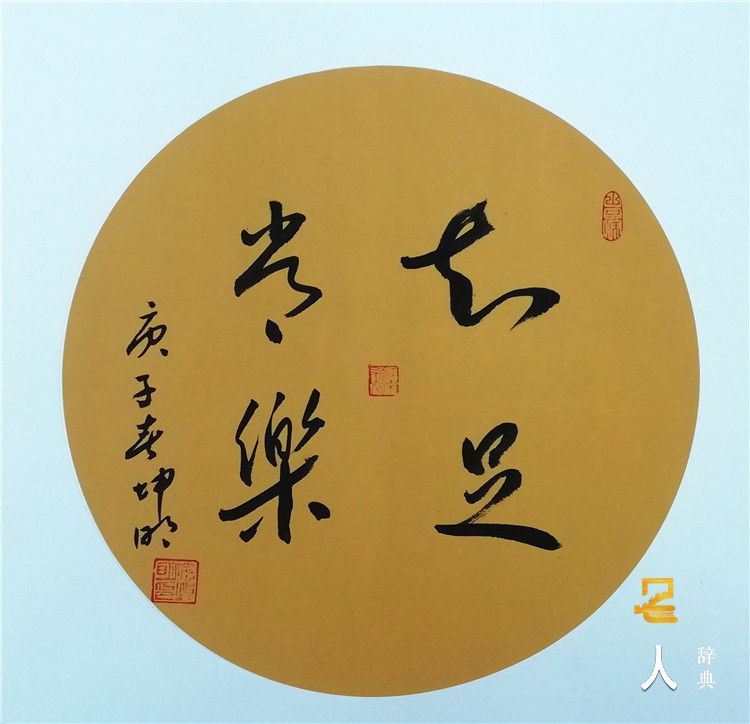 知足
常樂
庚子春坤明
名人
辞典